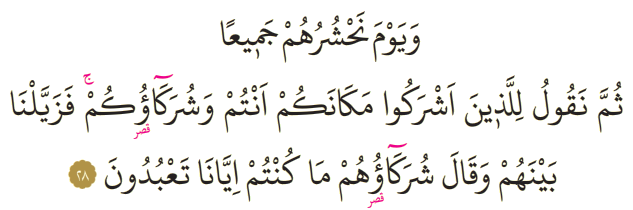 وَيَوْمَ نَحْشُرُهُمْ جَم۪يعًا
ثُمَّ نَقُولُ لِلَّذ۪ينَ اَشْرَكُوا مَكَانَكُمْ اَنْتُمْ وَشُرَكَٓاؤُ۬كُمْۚ فَزَيَّلْنَا
قصر
بَيْنَهُمْ وَقَالَ شُرَكَٓاؤُ۬هُمْ مَا كُنْتُمْ اِيَّانَا تَعْبُدُونَ ﴿٢٨﴾
قصر